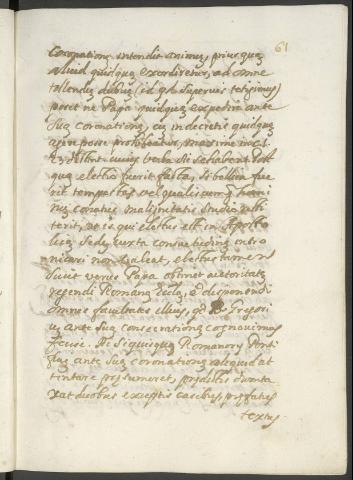 61
Coronationẽ intendit animus, priusquã
aliud quidquã exordiretur, ad omne
tollendũ dubiũ (id qd superius tetigimus)
posset ne Papa quidquã expedire ante
suã coronationẽ, cũ in decretis quidquã
agere posse prohibeatur, maxime in c. si
cuius verba sic se habent. Post
quã electio fuerit facta, si bellica fue
rit tempestas vel qualiscumq homi
nũ conatus malignitatis studio obsti
terit, ut is qui electus est in Aposto
lica Sede iuxta consuetudinẽ introni
nizari non valeat, electus tamen
sicut verus Papa obtinet autoritatẽ
regendi Romanã Eccl.ã, et disponendi
omnes facultates illius, qd B. Gregori
ũ ante suã consecrationẽ cognovimus
fecisse. Et si quisquã Romanorũ Ponti
ficũ ante suã coronationẽ aliquid at
tentare presumeret, preditis dumta
xat duobus exceptis casibus, prefatus
textus